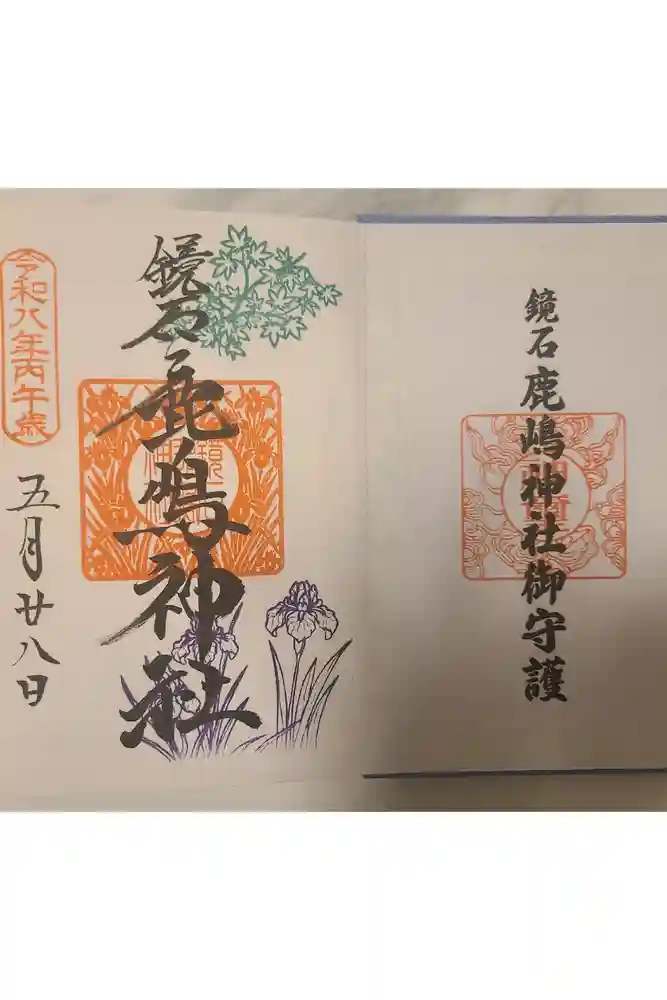 鏡石鹿嶋神社御守護
鏡石鹿嶋神社
令和八年丙午歳
五月廿八日